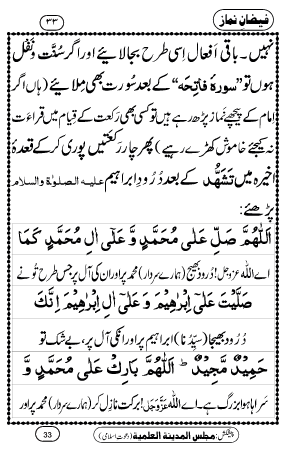 فیضانِ نماز
٣٣
نہیں۔ باقی اَفعال اِسی طرح بجا لائیے اور اگر سُنَّت ونَفْل
ہوں تو "سورۂ فاتِحَہ" کے بعد سُورت بھی مِلائیے (ہاں اگر
امام کے پیچھے نَماز پڑھ رہے ہیں تو کسی بھی رَکعت کے قِیام میں قراءت
نہ کیجئے خاموش کھڑے رہے) پھر چار رَکعتیں پوری کر کے قعدۂ
اخیرہ میں تَشَہُّد کے بعد دُرُودِ ابراہیم علیہ الصلوٰۃ والسلام
پڑھئے:
اَللّٰھُمَّ صَلِّ عَلٰی مُحَمَّدٍ وَّ عَلٰٓی اٰلِ مُحَمَّدٍ کَمَا
اے اللہ عزوجل! دُرُود بھیج (ہمارے سردار) محمد پر اور ان کی آل پر جس طرح تُو نے
صَلَّیْتَ عَلٰٓی اِبْرٰھِیْمَ وَ عَلٰٓی اٰلِ اِبْرٰھِیْمَ اِنَّکَ
دُرُود بھیجا (سیِّدُنا) ابراہیم پر اور انکی آل پر، بے شک تو
حَمِیْدٌ مَّجِیْدٌ ؕ اَللّٰھُمَّ بَارِكْ عَلٰی مُحَمَّدٍ وَّ
سَراہا ہوا بزرگ ہے۔ اے اللہ عزوجل! برکت نازِل کر (ہمارے سردار) محمد پر اور
پیشکش: مجلس المدینۃ العلمیۃ (دعوتِ اسلامی)
33